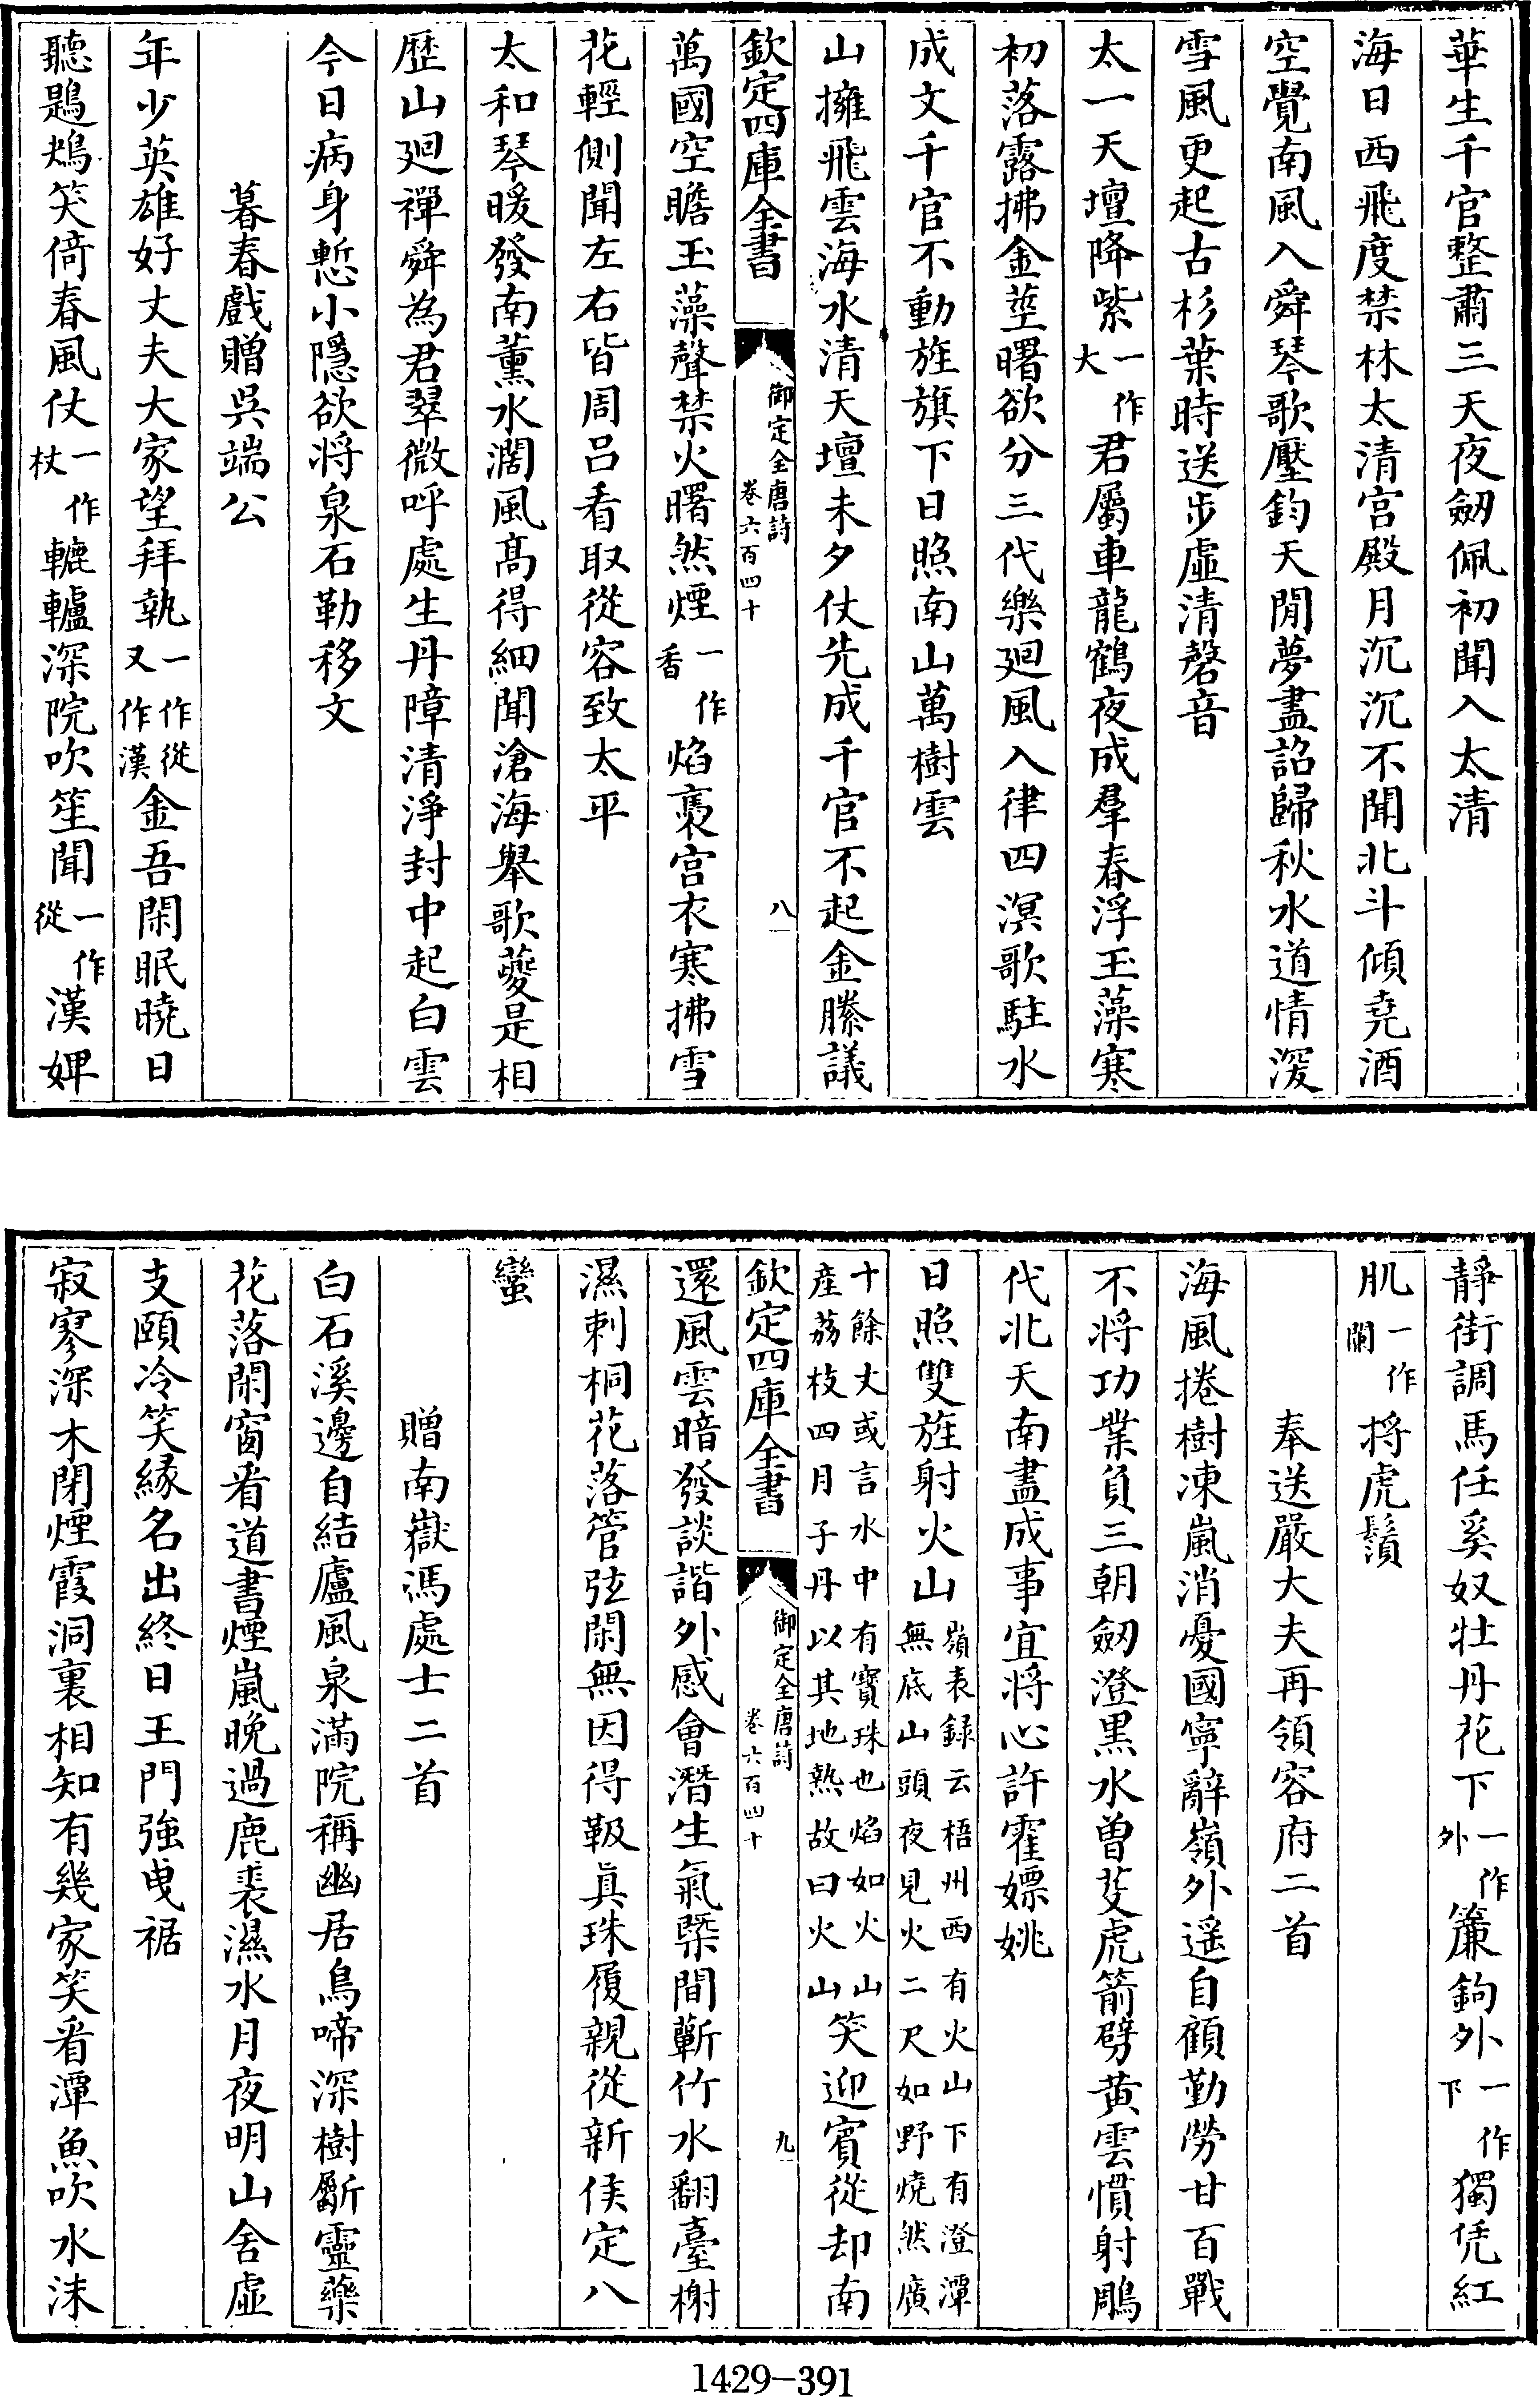 華生千官整肅三天夜劒佩初聞入太清
海日西飛度禁林太清宫殿月沉沉不聞北斗傾堯酒
空覺南風入舜琴歌壓鈞天閒夢盡詔歸秋水道情深
雪風更起古杉葉時送步虛清磬音
太一天壇降紫一作大君屬車龍鶴夜成羣春浮玉藻寒
初落露拂金莖曙欲分三代樂廻風入律四溟歌駐水
成文千官不動旌旗下日照南山萬樹雲
山擁飛雲海水清天壇未夕仗先成千官不起金縢議
欽定四庫全書
御定全唐詩
卷六百四十
八
萬國空瞻玉藻聲禁火曙然煙一作香焰褭宫衣寒拂雪
花輕側聞左右皆周吕看取從容致太平
太和琴暖發南薰水濶風髙得細聞滄海舉歌夔是相
歷山廻禪舜為君翠微呼處生丹障清淨封中起白雲
今日病身慙小隱欲將泉石勒移文
暮春戲贈吳端公
年少英雄好丈夫大家望拜執一作從又作漢金吾閑眠曉日
聽鶗鴂笑倚春風仗一作杖轆轤深院吹笙聞一作從漢婢
靜街調馬任奚奴牡丹花下一作外簾鉤外一作下獨凭紅
肌一作闌捋虎鬚
奉送嚴大夫再領容府二首
海風捲樹凍嵐消憂國寧辭嶺外遥自顧勤勞甘百戰
不將功業負三朝劒澄黒水曽芟虎箭劈黄雲慣射鵰
代北天南盡成事宜將心許霍嫖姚
日照雙旌射火山嶺表録云梧州西有火山下有澄潭無底山頭夜見火二尺如野燒然廣
十餘丈或言水中有寶珠也焰如火山産荔枝四月子丹以其地熱故曰火山笑迎賓從却南
欽定四庫全書
御定全唐詩
卷六百四十
九
還風雲暗發談諧外感會潛生氣槩間蘄竹水翻臺榭
濕刺桐花落管弦閑無因得靸真珠履親從新侯定八
蠻
贈南嶽馮處士二首
白石溪邊自結廬風泉滿院稱幽居鳥啼深樹斸靈藥
花落閑窗看道書煙嵐晚過鹿裘濕水月夜明山舍虛
支頤冷笑縁名出終日王門強曵裾
寂寥深木閉煙霞洞裏相知有幾家笑看潭魚吹水沫
1429-391